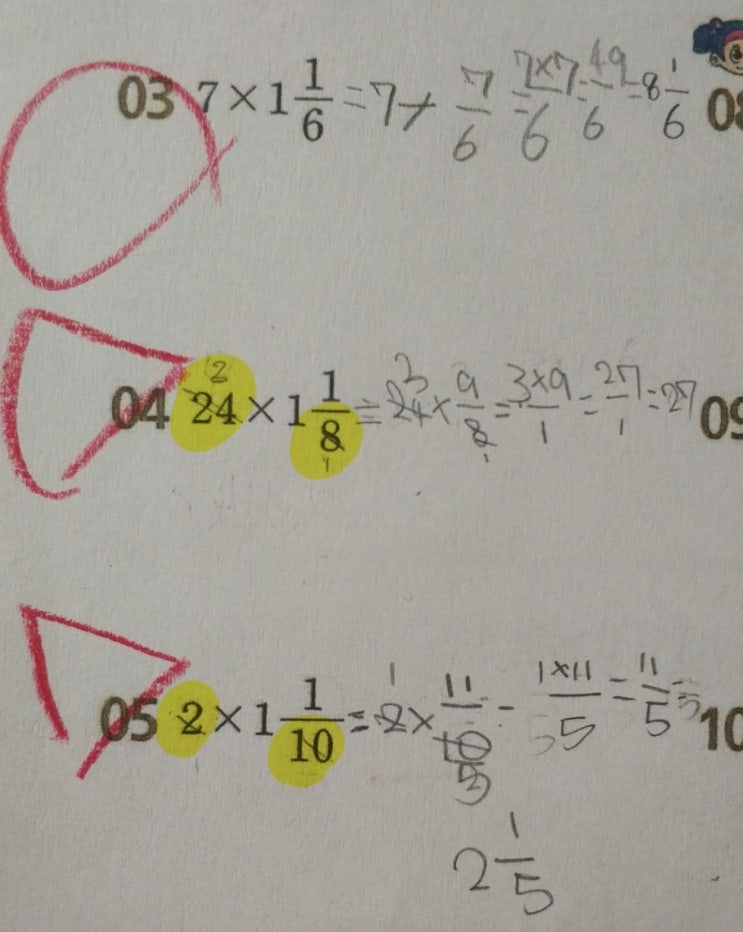 03 7 × 1 1/6 = 7 × 7/6 = 7×7/6 = 49/6 = 8 1/6 08
04 24 × 1 1/8 = 24 × 9/8 = 3×9/1 = 27/1 = 27 09
05 2 × 1 1/10 = 2 × 11/10 = 1×11/5 = 11/5 = 10
2 1/5